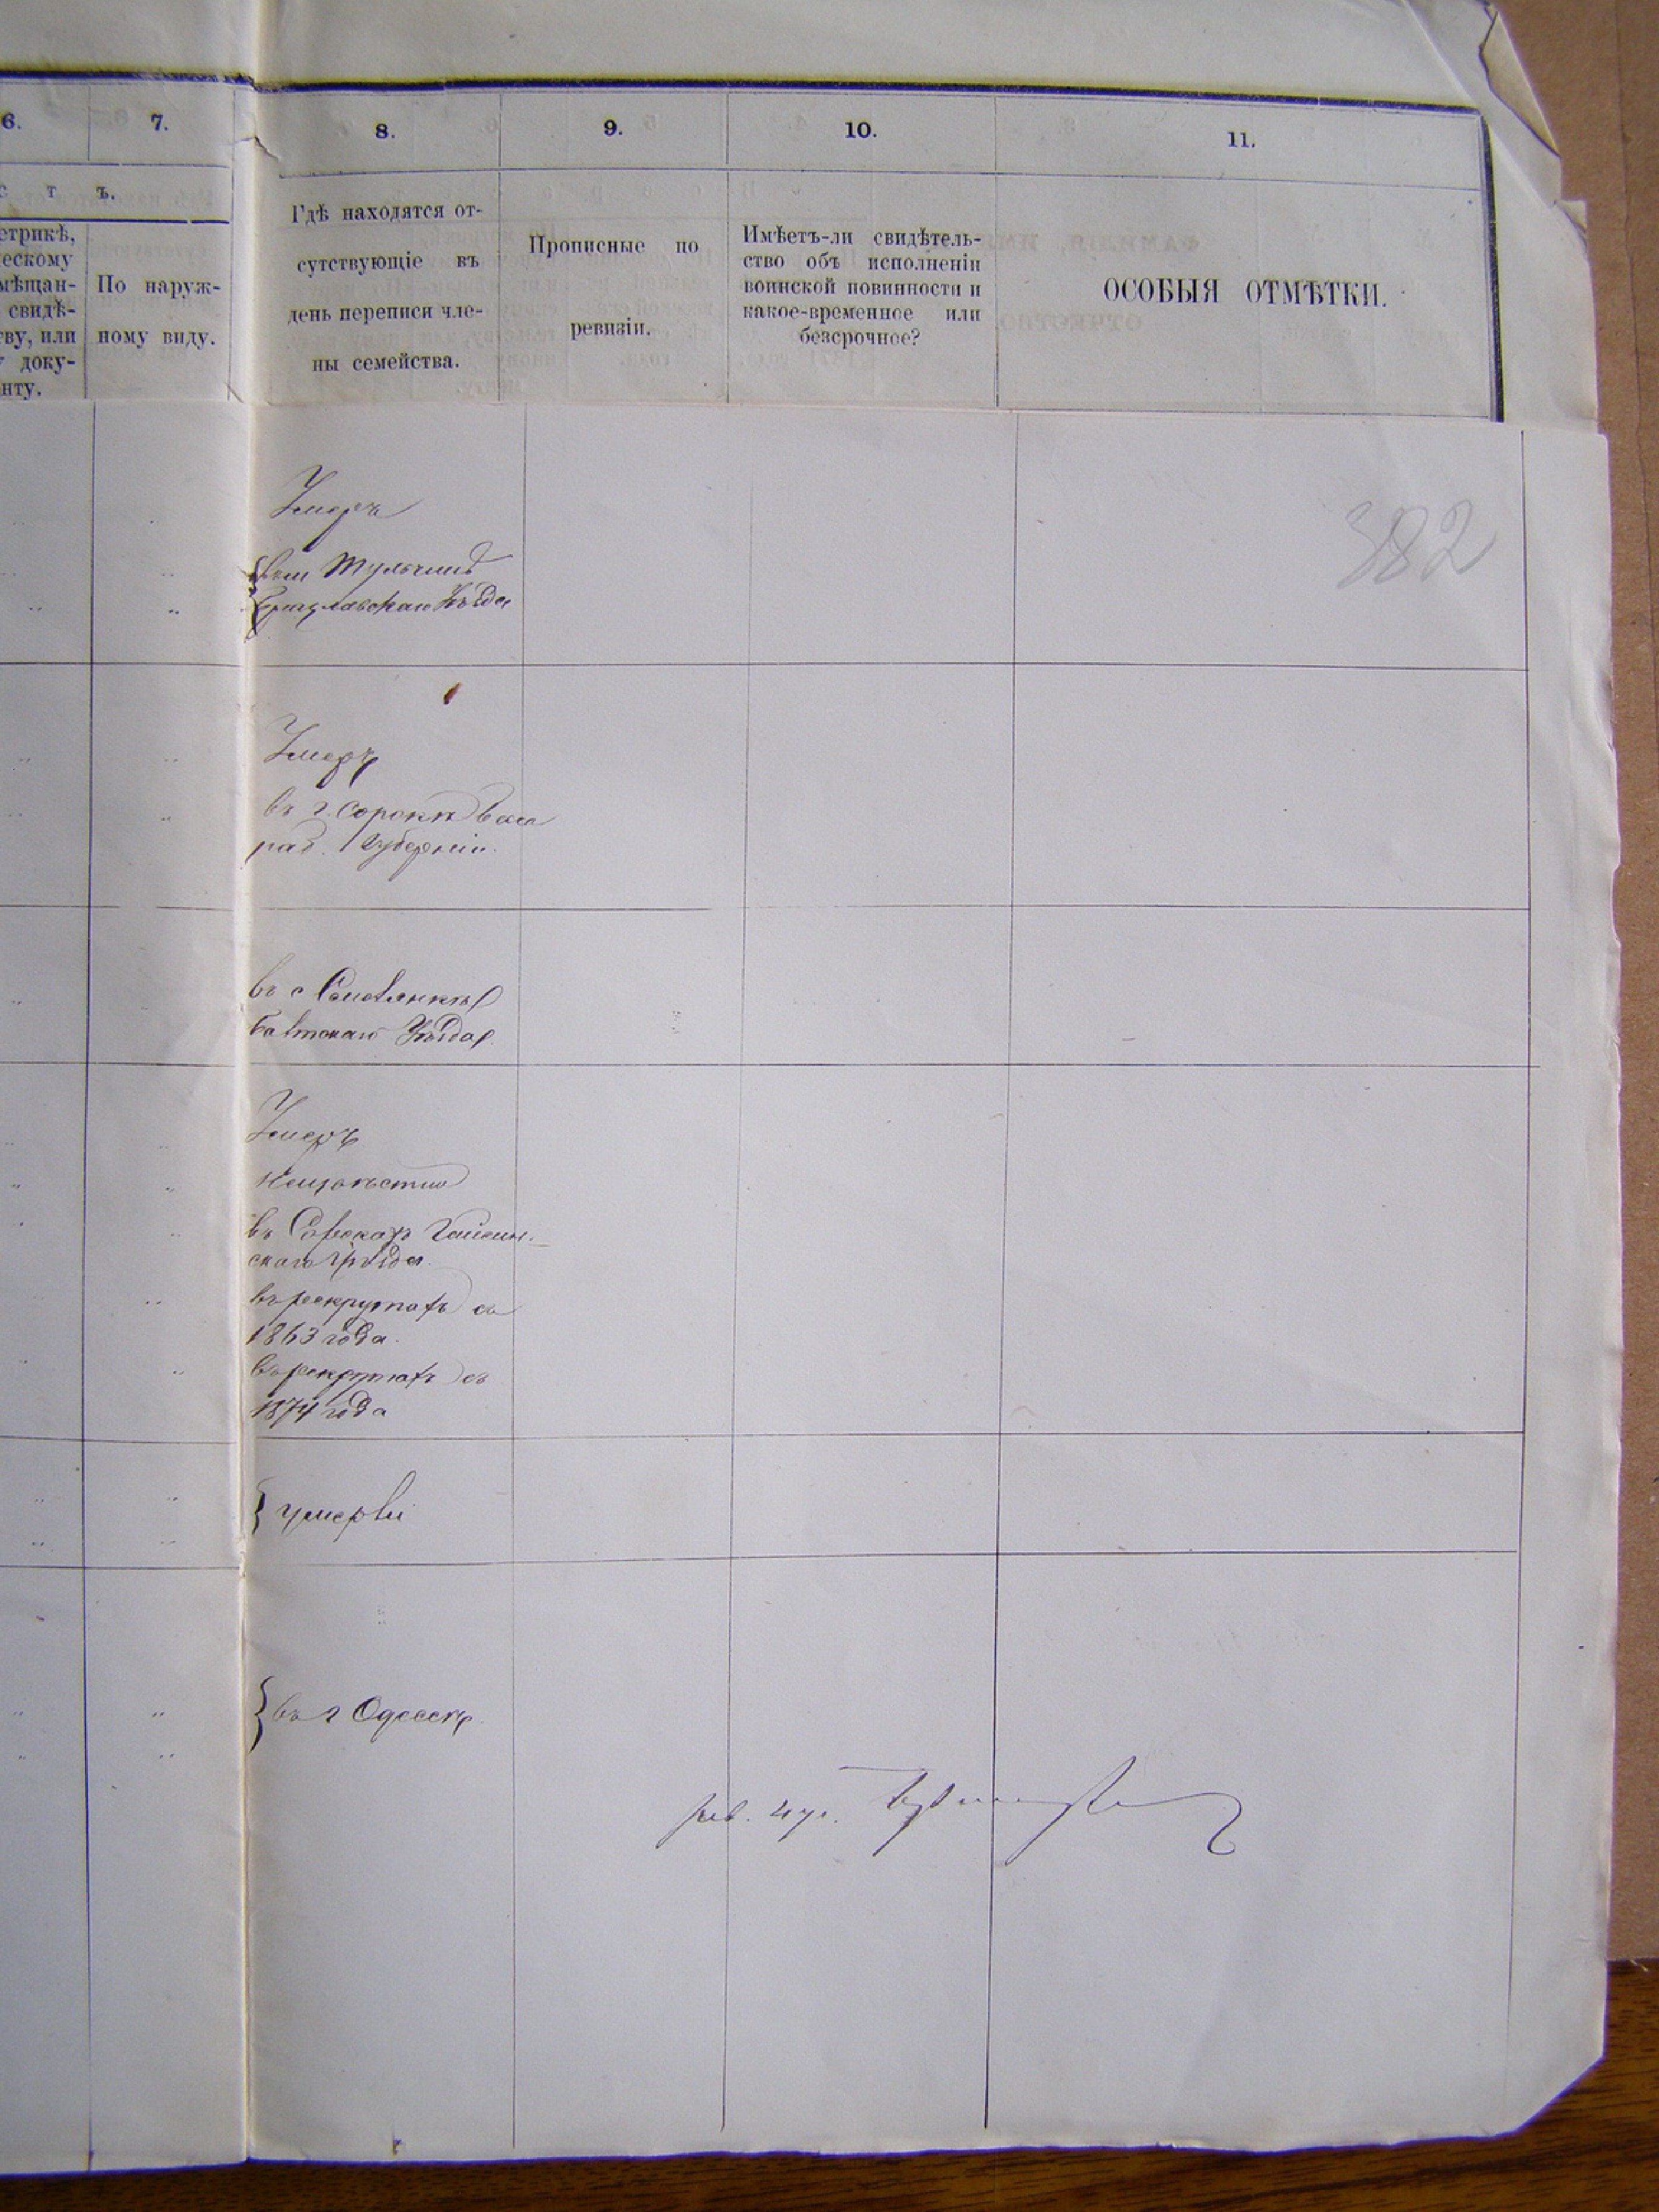 6.
7.
8.
9.
10.
11.
с т ъ.
етрикѣ,
ческому
мѣщан-
свидѣ-
ву, или
у доку-
нту.
По наруж-
ному виду.
Гдѣ находятся от-
сутствующіе въ
день переписи чле-
ны семейства.
Прописные по
ревизіи.
Имѣетъ-ли свидѣтель-
ство объ исполненіи
воинской повинности и
какое-временное или
безсрочное?
ОСОБЫЯ ОТМѢТКИ.
382
Умеръ
въ м Тульчинѣ
Брацлавскаго Уѣзда
Умеръ
въ г. Сорокѣ Бесса
раб. Губерніи.
въ с
Балтскаго Уѣзда
Умеръ
неизвѣстно
въ Гайсин-
скаго Уѣзда
въ рекрутахъ съ
1863 года.
въ рекрутахъ съ
1874 года
умерли
въ г Одессѣ